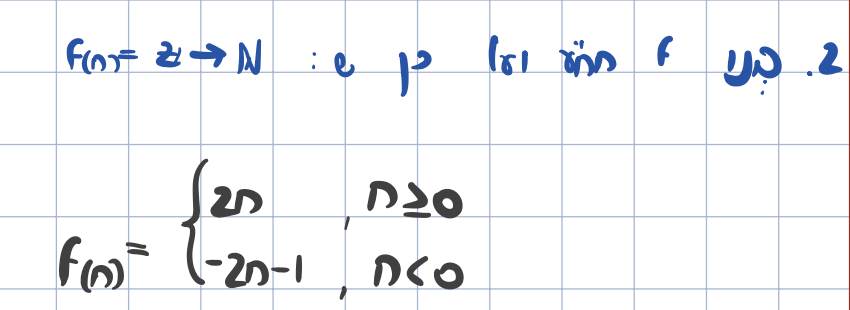 2. f חח"ע ועל כן ש: f(n)= ℤ → ℕ
f(n) = { 2n , n ≥ 0
-2n-1 , n < 0